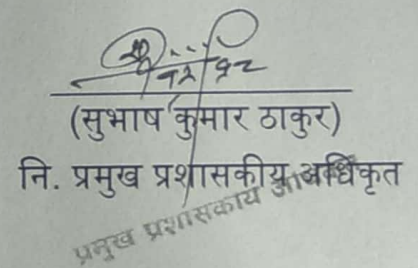 (सुभाष कुमार ठाकुर)
नि. प्रमुख प्रशासकीय अधिकृत
प्रमुख प्रशासकीय